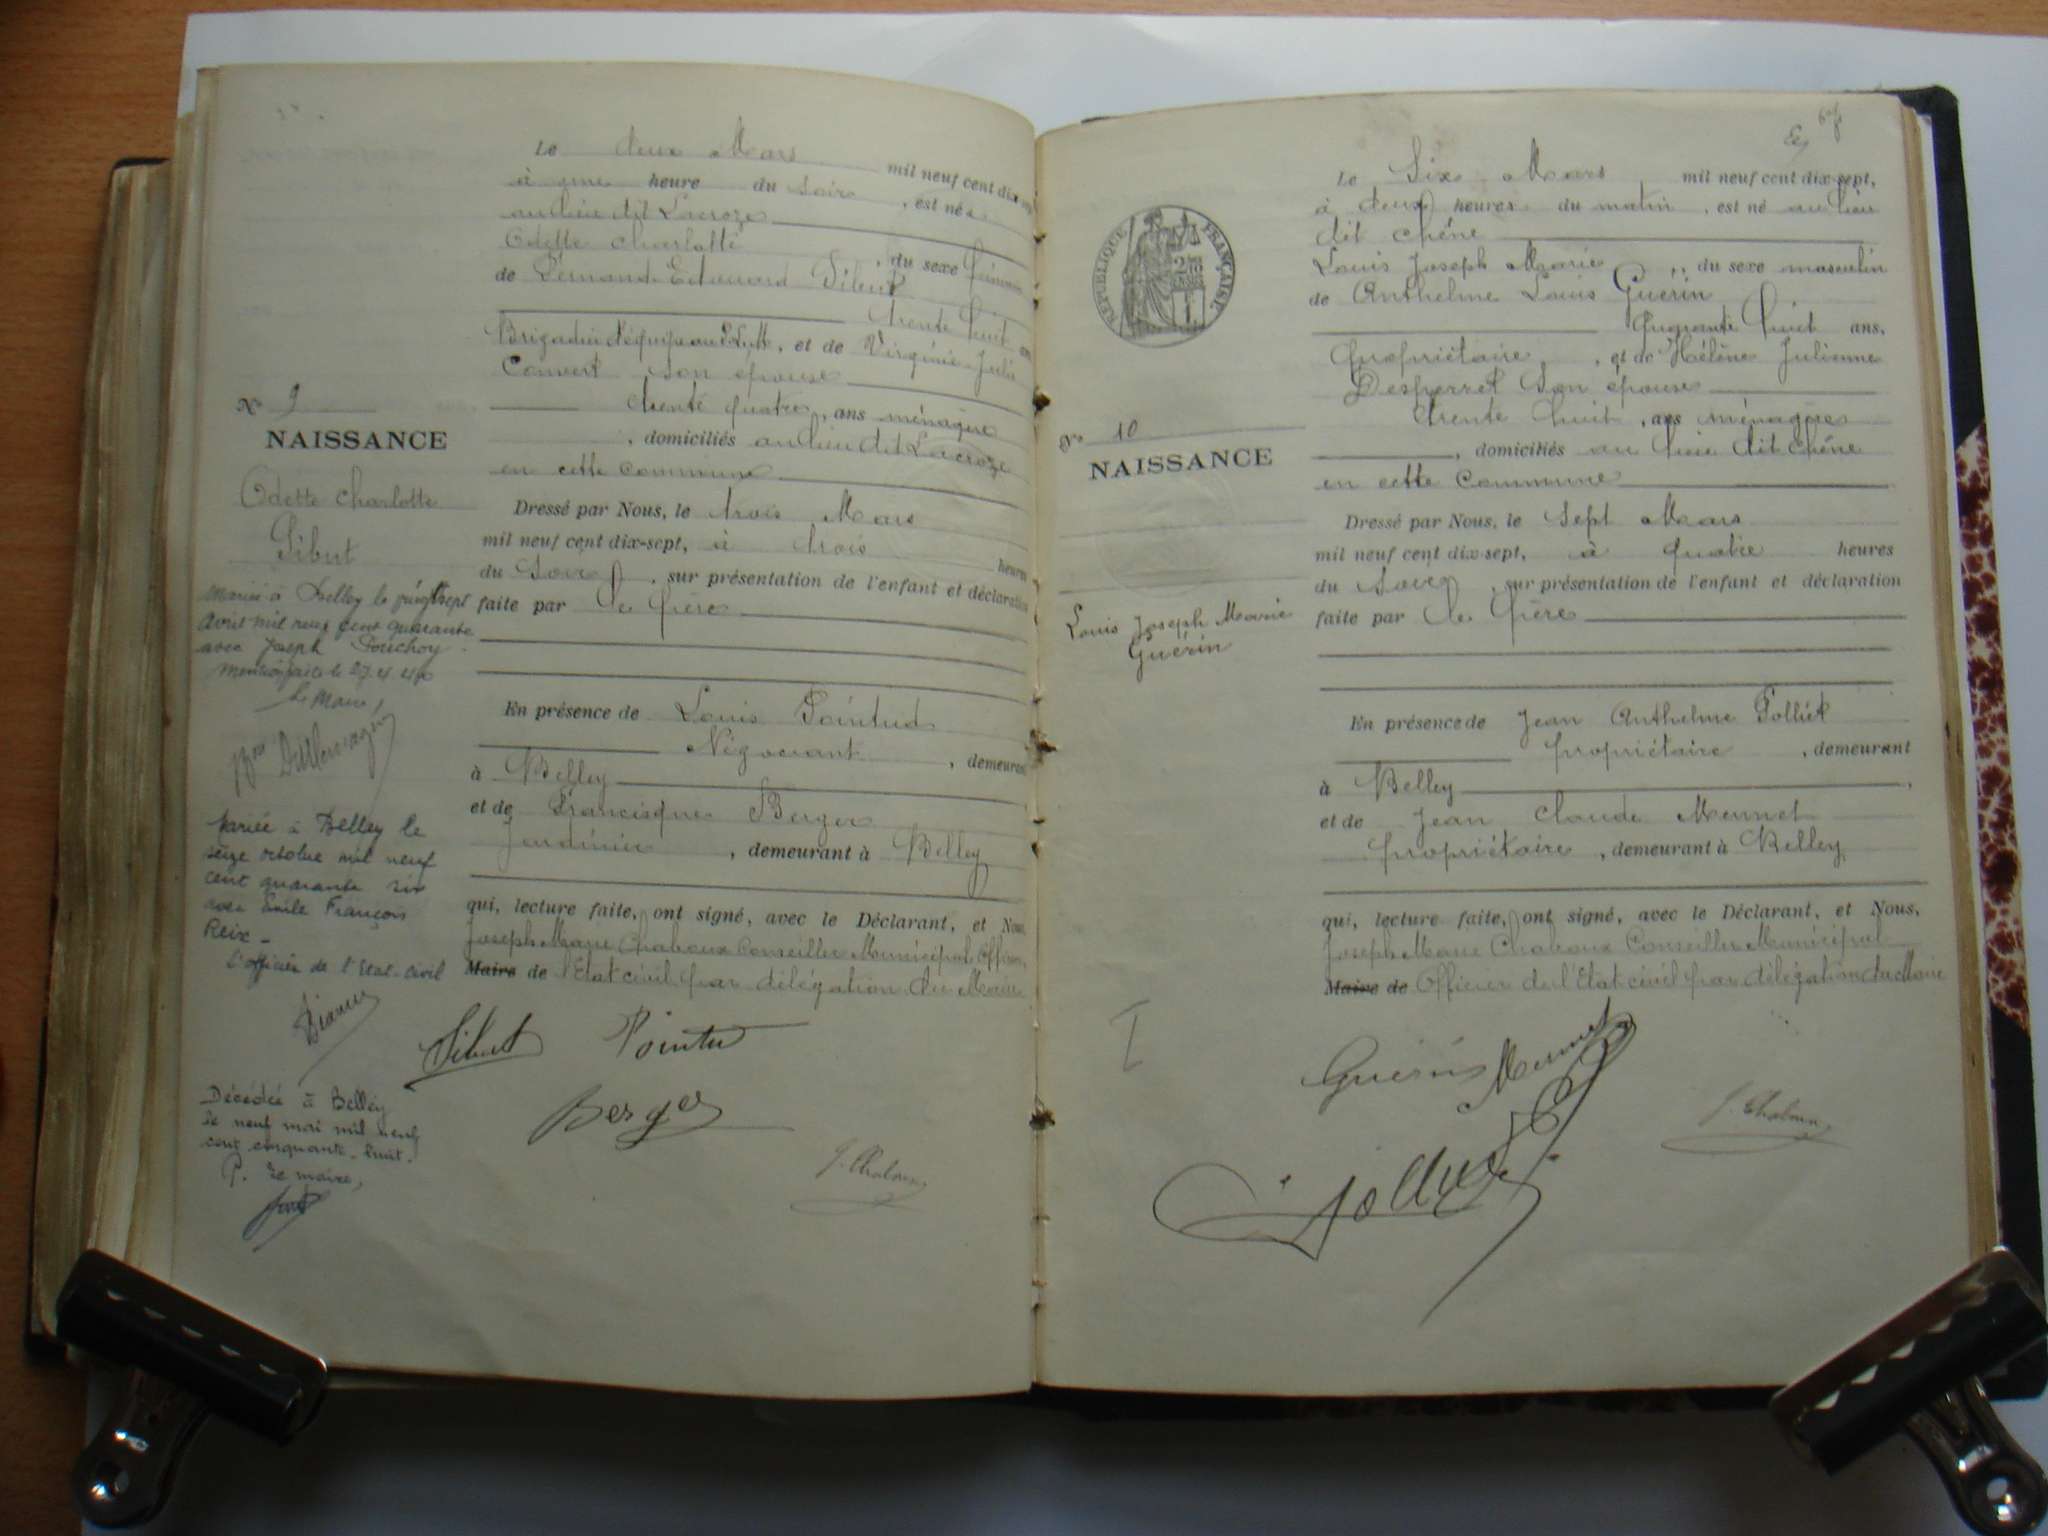 Le deux Mars mil neuf cent dix-sept
à une heure du soir, est née
au lieu dit Lacroze
Odette Charlotte, du sexe féminin
de Fernand Edouard Sibut
trente huit ans
Brigadier d'équipe au P.L.M, et de Virginie Julie
Convert son épouse
trente quatre, ans ménagère
, domiciliés au lieu dit Lacroze
en cette commune
Dressé par Nous, le trois Mars
mil neuf cent dix-sept, à trois heures
du soir, sur présentation de l'enfant et déclaration
faite par le Père
En présence de Louis Pointud
Négociant, demeurant
à Belley
et de Francisque Berger
Jardinier, demeurant à Belley
qui, lecture faite, ont signé, avec le Déclarant, et Nous,
Joseph Marie Chaboux Conseiller Municipal Officier
Maire de l'Etat civil par délégation du Maire
Sibut Pointu
Berger
J. Chaboux
N° 9
NAISSANCE
Odette Charlotte
Sibut
Mariée à Belley le vingt sept
Avril mil neuf cent quarante
avec Joseph Pouchoy.
Mention faite le 27.4.40
Le Maire,
Mariée à Belley le
seize octobre mil neuf
cent quarante six
avec Emile François
Reix -
L'officier de l'Etat-civil
Décédée à Belley
le neuf mai mil neuf
cent cinquante-huit.
P. Le maire,
6e f
Le Six Mars mil neuf cent dix-sept,
à deux heures du matin, est né au lieu
dit Chêne
Louis Joseph Marie, du sexe masculin
de Anthelme Louis Guérin
Quarante huit ans,
propriétaire, et de Hélène Julienne
Desperret Son épouse
trente huit, ans ménagère
, domiciliés au lieu dit Chêne
en cette Commune
Dressé par Nous, le Sept Mars
mil neuf cent dix-sept, à quatre heures
du soir, sur présentation de l'enfant et déclaration
faite par le Père
En présence de Jean Anthelme Polliet
propriétaire, demeurant
à Belley,
et de Jean Claude Meunet
propriétaire, demeurant à Belley
qui, lecture faite, ont signé, avec le Déclarant, et Nous,
Joseph Marie Chaboux Conseiller Municipal
Maire de Officier de l'Etat civil par délégation du Maire
Guérin Meunet
Polliet
J. Chaboux
RÉPUBLIQUE FRANÇAISE
N° 10
NAISSANCE
Louis Joseph Marie
Guérin